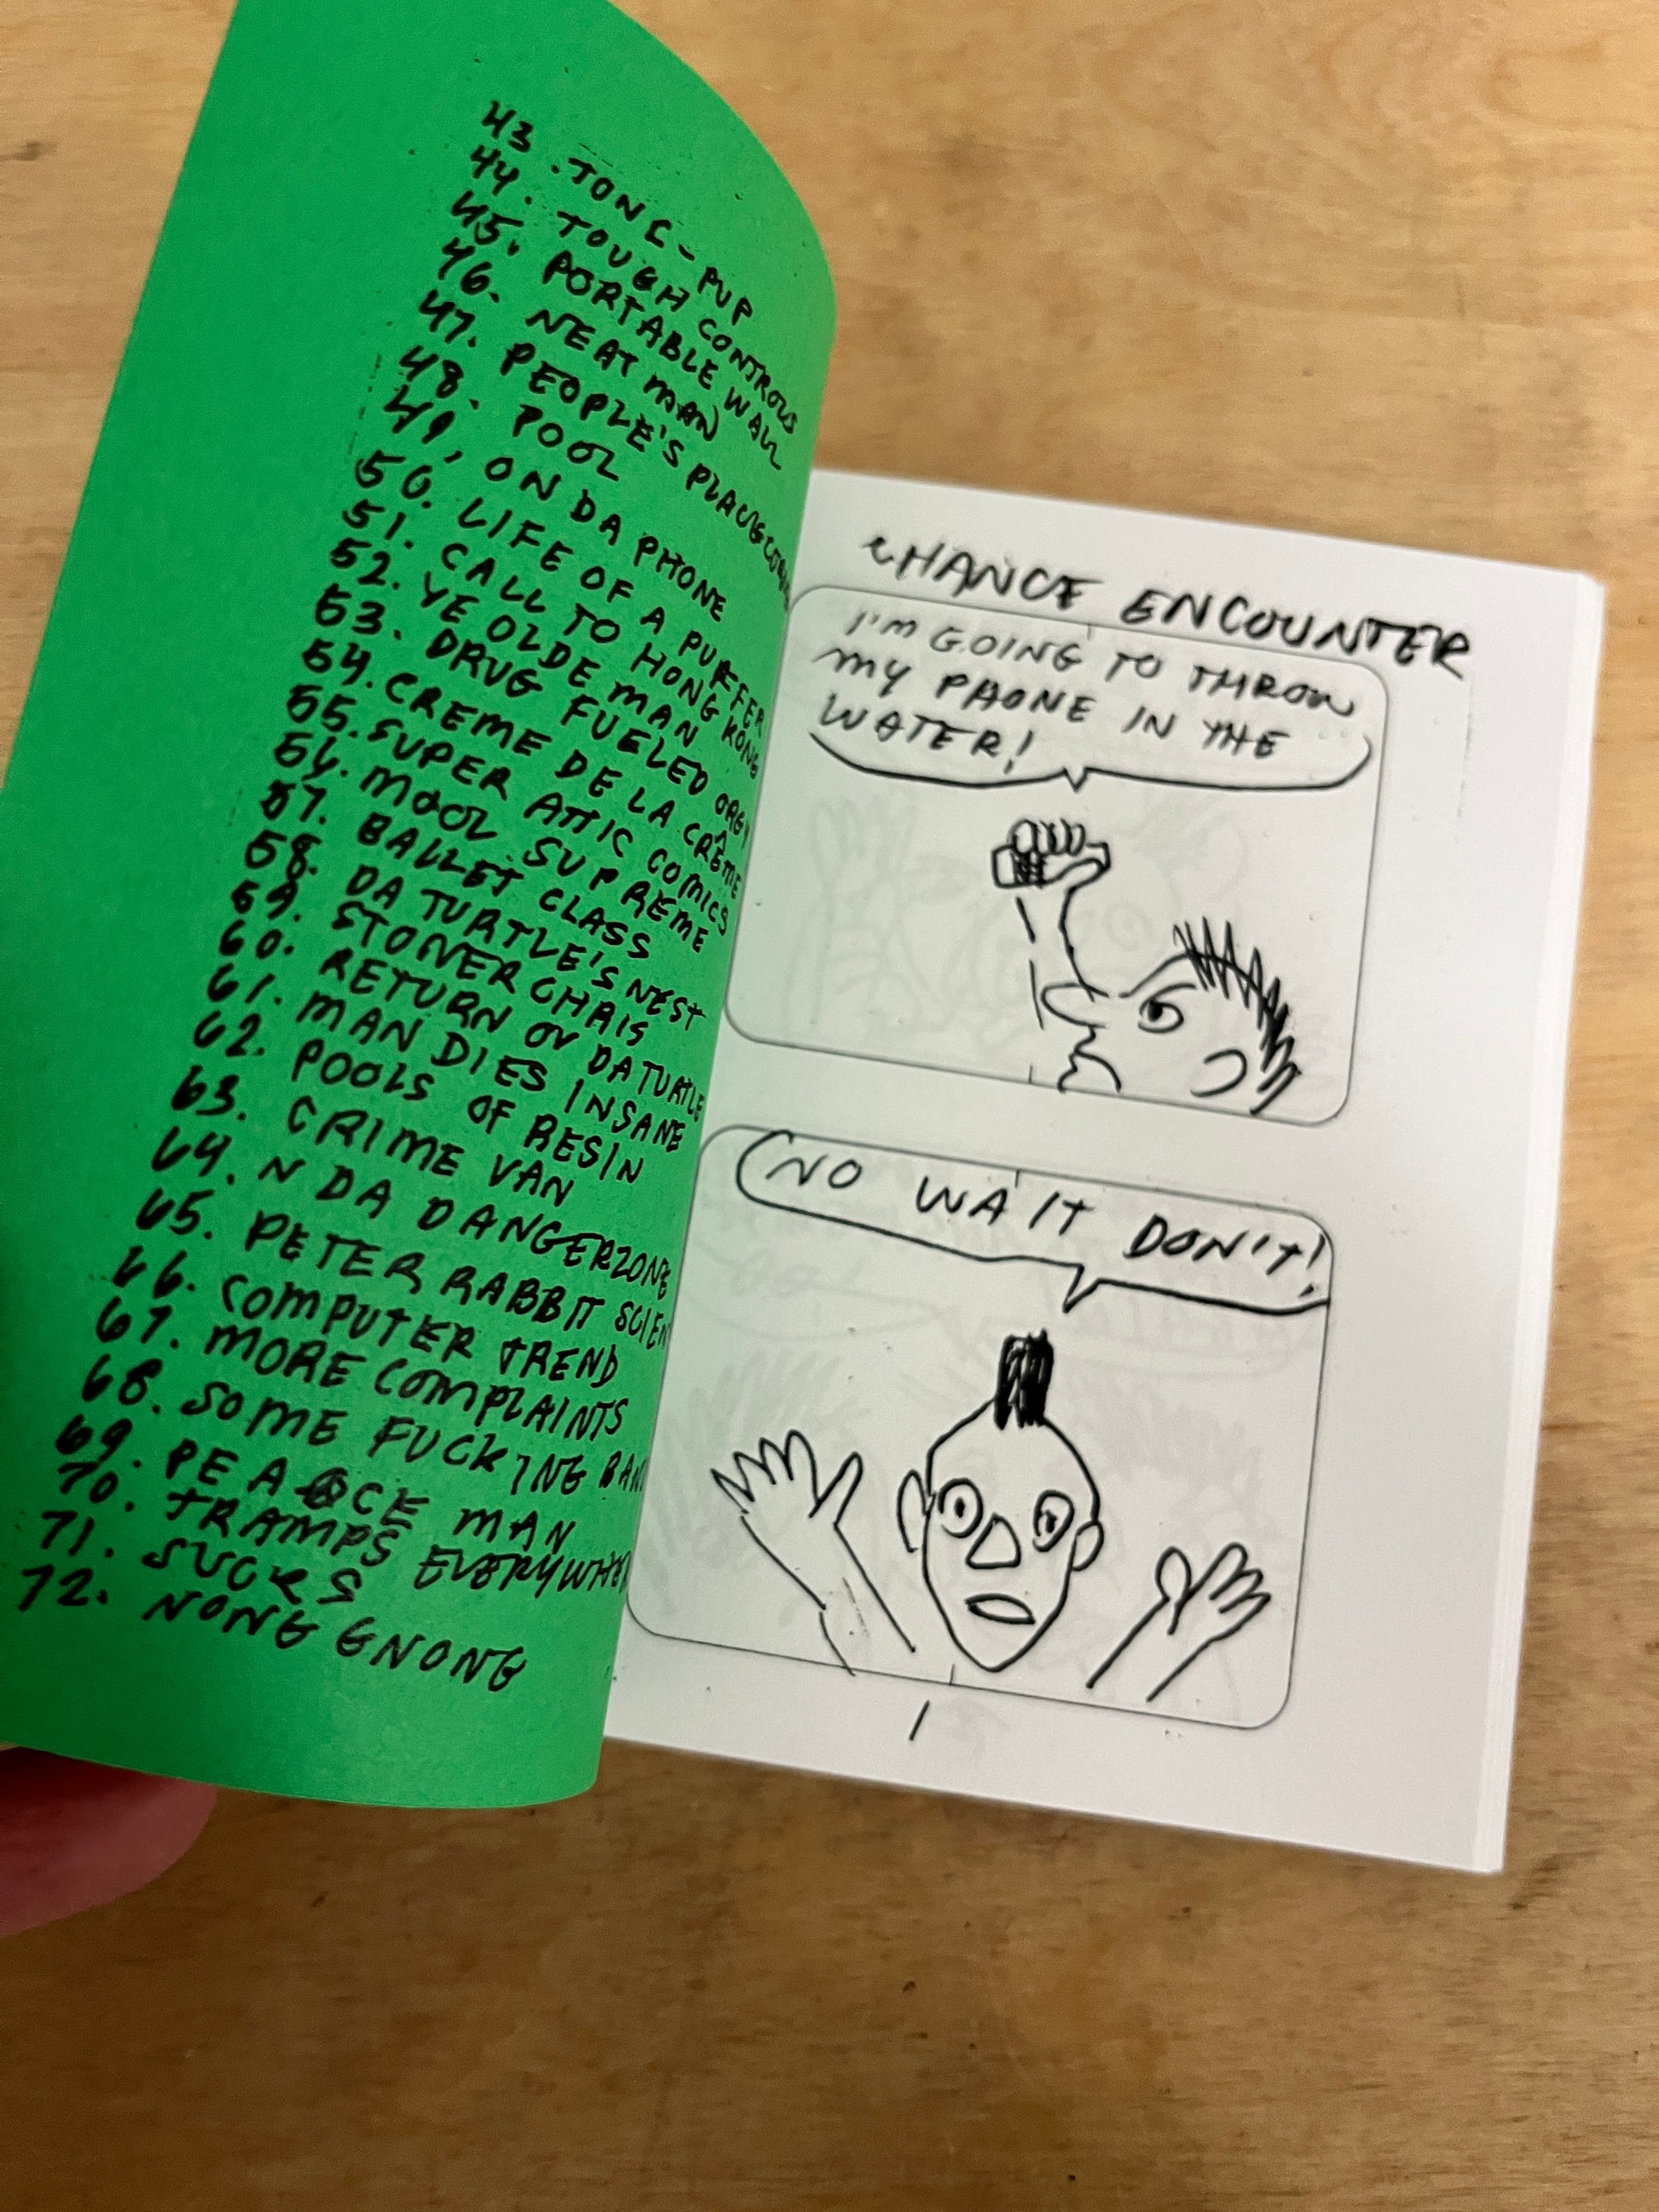 43. TONE-PUP
44. TOUGH CONTROLS
45. PORTABLE WALL
46. NEAT MAN
47. PEOPLE'S
48. POOL
49. ON DA PHONE
50. LIFE OF A PUFFER
51. CALL TO HONG KONG
52. YE OLDE MAN
53. DRUG FUELED ORGY
54. CREME DE LA CRÊME
55. SUPER ATTIC COMICS
56. MOOL SUPREME
57. BALLET CLASS
58. DA TURTLE'S NEST
59. STONER CHAIS
60. RETURN OV DA TURTLE
61. MAN DIES INSANE
62. POOLS OF RESIN
63. CRIME VAN
64. N DA DANGERZONE
65. PETER RABBIT SCIEN
66. COMPUTER TREND
67. MORE COMPLAINTS
68. SOME FUCKING BAN
69. PEACE MAN
70. TRAMPS EVERYWHER
71. SUCKS
72. NONG GNONG
CHANCE ENCOUNTER
I'M GOING TO THROW
MY PHONE IN THE
WATER!
NO WAIT DON'T!
1